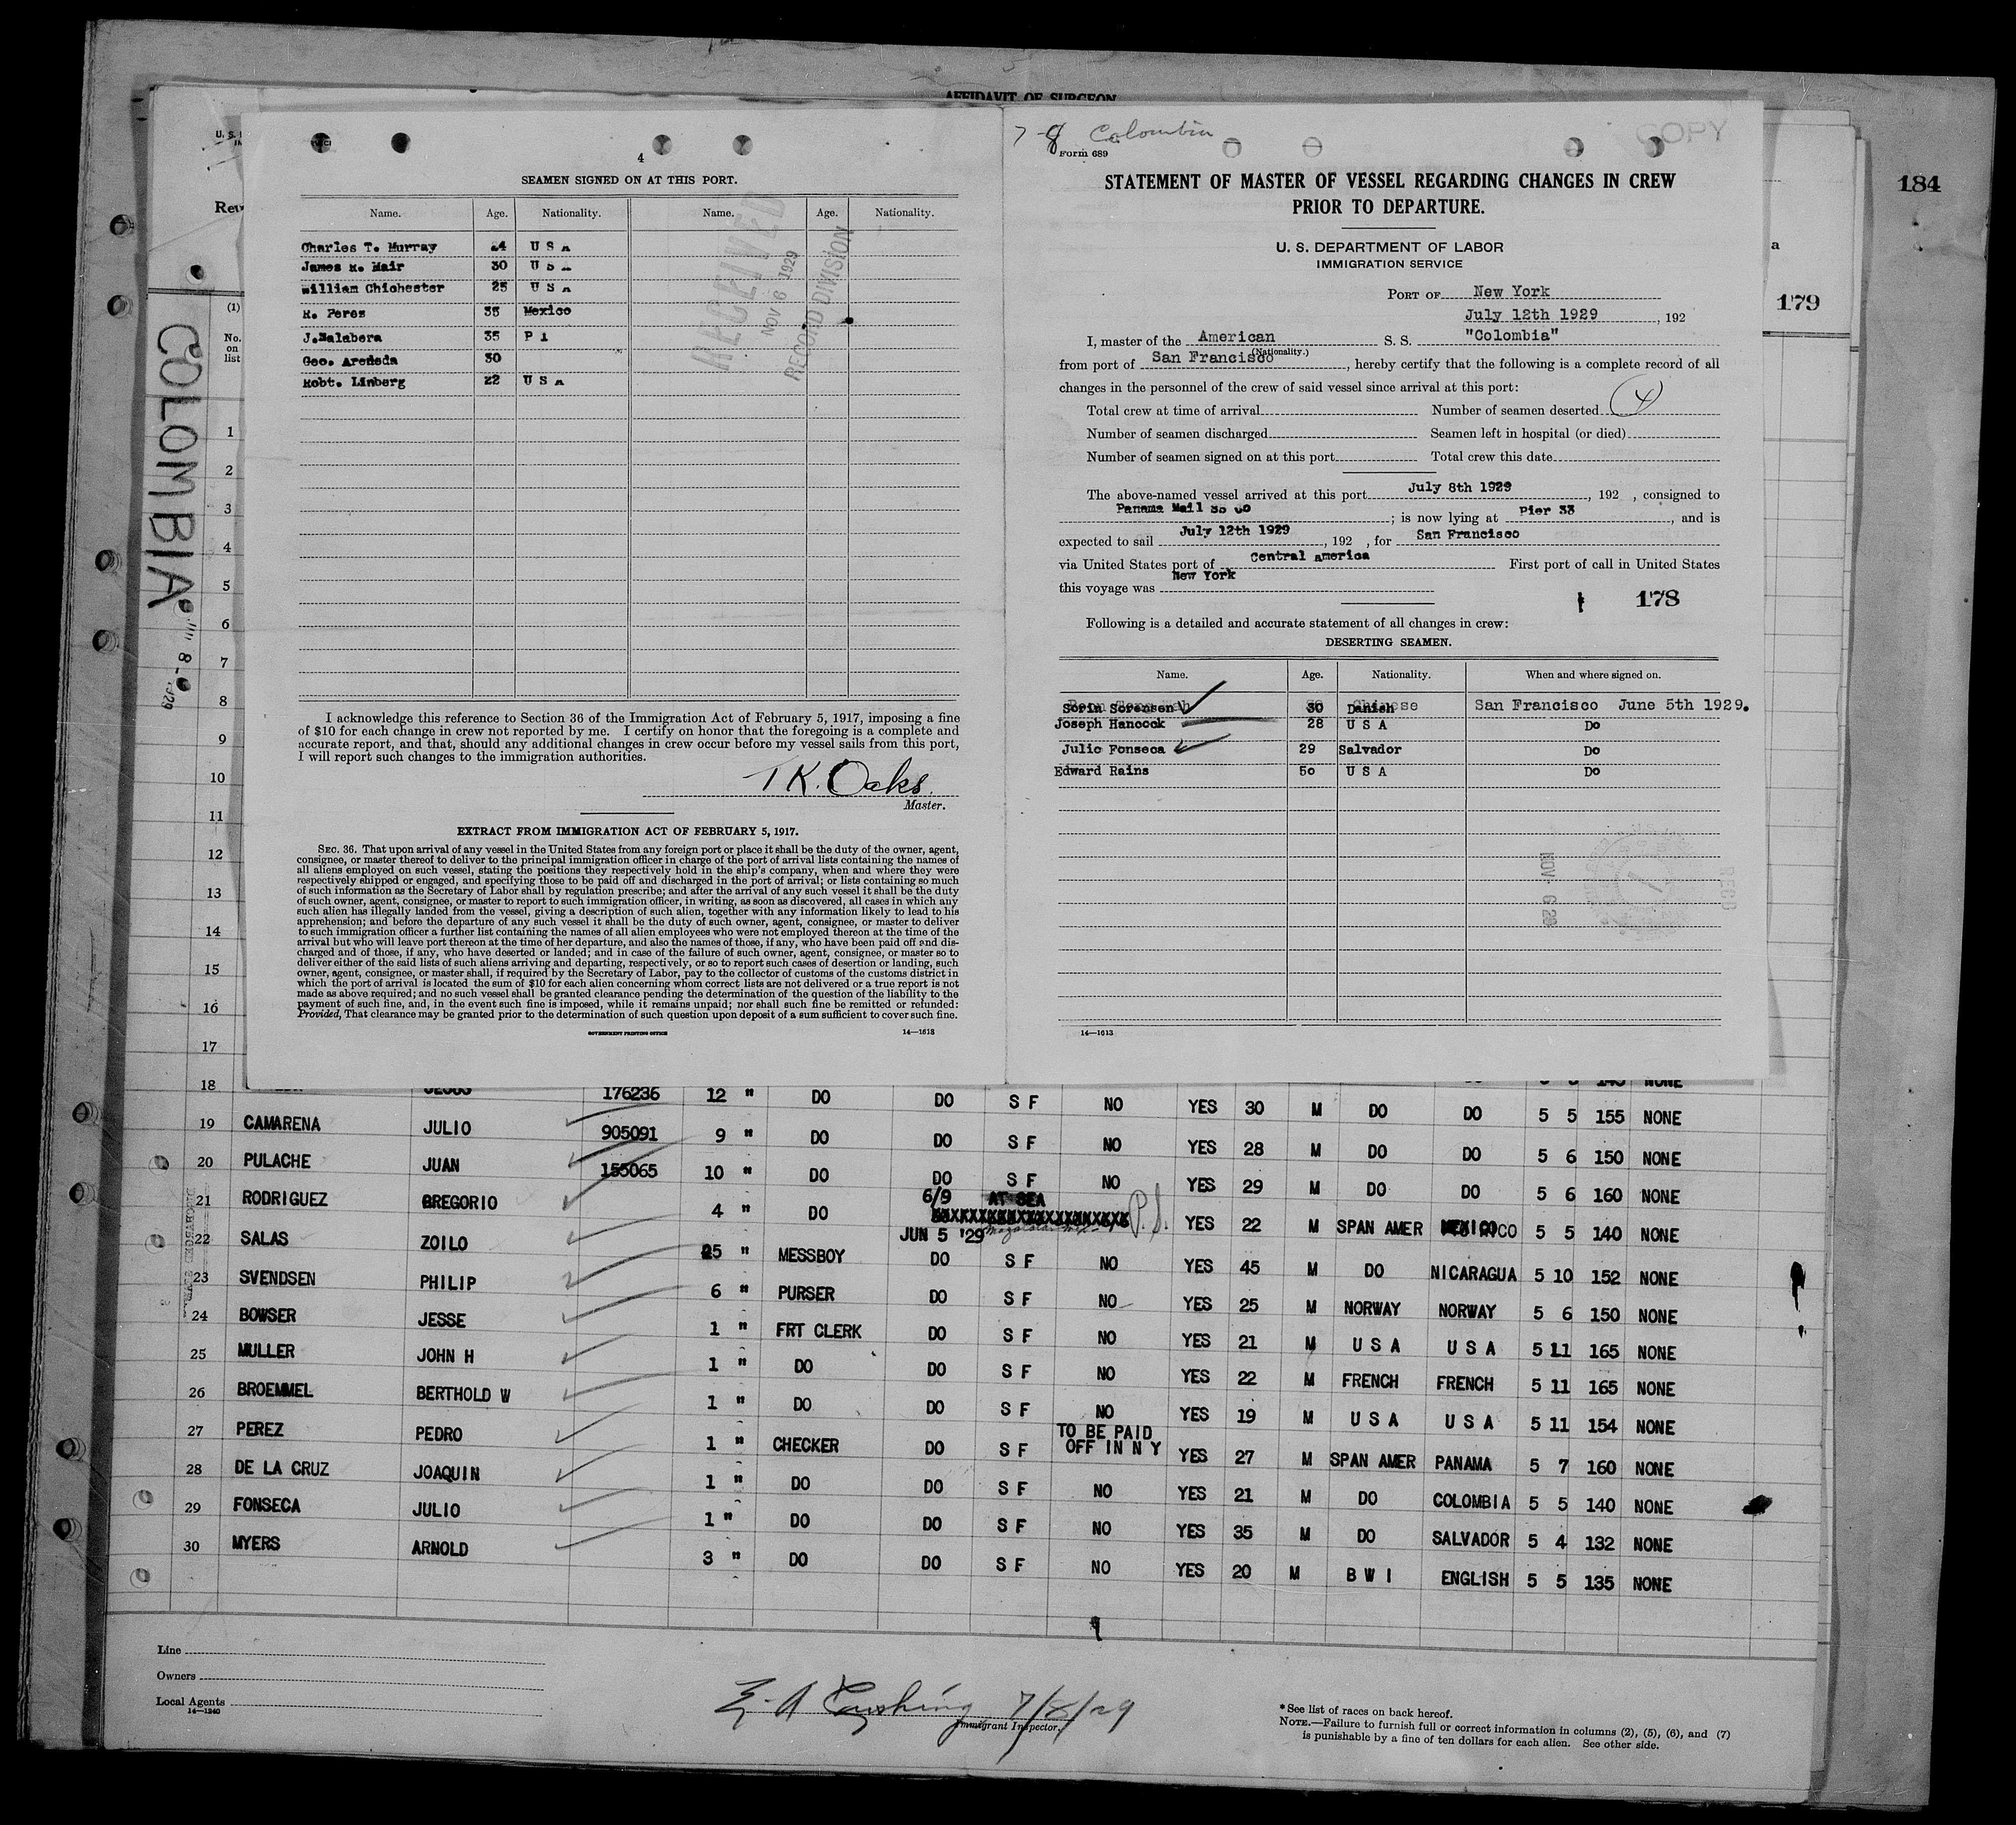 AFFIDAVIT OF SURGEON
184
179
a
U. S.
Rev
(1)
No.
on
list
COLOMBIA
4
SEAMEN SIGNED ON AT THIS PORT.
Name. Age. Nationality. Name. Age. Nationality.
Charles T. Murray 24 U S A
James R. Mair 30 U S A
William Chichester 25 U S A
R. Perez 35 Mexico
J. Malabera 35 P I
Geo. Areneda 30
Robt. Linberg 22 U S A
RECEIVED
NOV 6 1929
RECORD DIVISION
I acknowledge this reference to Section 36 of the Immigration Act of February 5, 1917, imposing a fine
of $10 for each change in crew not reported by me. I certify on honor that the foregoing is a complete and
accurate report, and that, should any additional changes in crew occur before my vessel sails from this port,
I will report such changes to the immigration authorities.
T K. Oaks.
Master.
EXTRACT FROM IMMIGRATION ACT OF FEBRUARY 5, 1917.
SEC. 36. That upon arrival of any vessel in the United States from any foreign port or place it shall be the duty of the owner, agent,
consignee, or master thereof to deliver to the principal immigration officer in charge of the port of arrival lists containing the names of
all aliens employed on such vessel, stating the positions they respectively hold in the ship's company, when and where they were
respectively shipped or engaged, and specifying those to be paid off and discharged in the port of arrival; or lists containing so much
of such information as the Secretary of Labor shall by regulation prescribe; and after the arrival of any such vessel it shall be the duty
of such owner, agent, consignee, or master to report to such immigration officer, in writing, as soon as discovered, all cases in which any
such alien has illegally landed from the vessel, giving a description of such alien, together with any information likely to lead to his
apprehension; and before the departure of any such vessel it shall be the duty of such owner, agent, consignee, or master to deliver
to such immigration officer a further list containing the names of all alien employees who were not employed thereon at the time of the
arrival but who will leave port thereon at the time of her departure, and also the names of those, if any, who have been paid off and dis-
charged and of those, if any, who have deserted or landed; and in case of the failure of such owner, agent, consignee, or master so to
deliver either of the said lists of such aliens arriving and departing, respectively, or so to report such cases of desertion or landing, such
owner, agent, consignee, or master shall, if required by the Secretary of Labor, pay to the collector of customs of the customs district in
which the port of arrival is located the sum of $10 for each alien concerning whom correct lists are not delivered or a true report is not
made as above required; and no such vessel shall be granted clearance pending the determination of the question of the liability to the
payment of such fine, and, in the event such fine is imposed, while it remains unpaid; nor shall such fine be remitted or refunded:
Provided, That clearance may be granted prior to the determination of such question upon deposit of a sum sufficient to cover such fine.
GOVERNMENT PRINTING OFFICE 14—1613
7-8 Colombia
COPY
Form 689
STATEMENT OF MASTER OF VESSEL REGARDING CHANGES IN CREW
PRIOR TO DEPARTURE.
U. S. DEPARTMENT OF LABOR
IMMIGRATION SERVICE
PORT OF New York
July 12th 1929, 192
I, master of the American S. S. "Colombia"
(Nationality.)
from port of San Francisco, hereby certify that the following is a complete record of all
changes in the personnel of the crew of said vessel since arrival at this port:
Total crew at time of arrival Number of seamen deserted 4
Number of seamen discharged Seamen left in hospital (or died)
Number of seamen signed on at this port Total crew this date
The above-named vessel arrived at this port July 8th 1929, 192 , consigned to
Panama Mail SS Co; is now lying at Pier 33, and is
expected to sail July 12th 1929, 192 , for San Francisco
via United States port of Central America First port of call in United States
this voyage was New York
178
Following is a detailed and accurate statement of all changes in crew:
DESERTING SEAMEN.
Name. Age. Nationality. When and where signed on.
Sorin Sorensen 30 Danish San Francisco June 5th 1929.
Joseph Hancock 28 U S A Do
Julio Fonseca 29 Salvador Do
Edward Rains 50 U S A Do
NOV 6 29
RECD
14—1613
1
2
3
4
5
6
7
8
9
10
11
12
13
14
15
16
17
18 176236 12 " DO DO S F NO YES 30 M DO DO 5 5 155 NONE
19 CAMARENA JULIO 905091 9 " DO DO S F NO YES 28 M DO DO 5 6 150 NONE
20 PULACHE JUAN 155065 10 " DO DO S F NO YES 29 M DO DO 5 6 160 NONE
21 RODRIGUEZ GREGORIO 4 " DO 6/9 AT SEA P.S. YES 22 M SPAN AMER MEXICO 5 5 140 NONE
22 SALAS ZOILO 25 " MESSBOY JUN 5 '29 DO S F NO YES 45 M DO NICARAGUA 5 10 152 NONE
23 SVENDSEN PHILIP 6 " PURSER DO S F NO YES 25 M NORWAY NORWAY 5 6 150 NONE
24 BOWSER JESSE 1 " FRT CLERK DO S F NO YES 21 M U S A U S A 5 11 165 NONE
25 MULLER JOHN H 1 " DO DO S F NO YES 22 M FRENCH FRENCH 5 11 165 NONE
26 BROEMMEL BERTHOLD W 1 " DO DO S F NO YES 19 M U S A U S A 5 11 154 NONE
27 PEREZ PEDRO 1 " CHECKER DO S F TO BE PAID OFF IN N Y YES 27 M SPAN AMER PANAMA 5 7 160 NONE
28 DE LA CRUZ JOAQUIN 1 " DO DO S F NO YES 21 M DO COLOMBIA 5 5 140 NONE
29 FONSECA JULIO 1 " DO DO S F NO YES 35 M DO SALVADOR 5 4 132 NONE
30 MYERS ARNOLD 3 " DO DO S F NO YES 20 M B W I ENGLISH 5 5 135 NONE
Line
Owners
Local Agents
14—1240
E. A Cushing 7/8/29
Immigrant Inspector.
*See list of races on back hereof.
NOTE.—Failure to furnish full or correct information in columns (2), (5), (6), and (7)
is punishable by a fine of ten dollars for each alien. See other side.